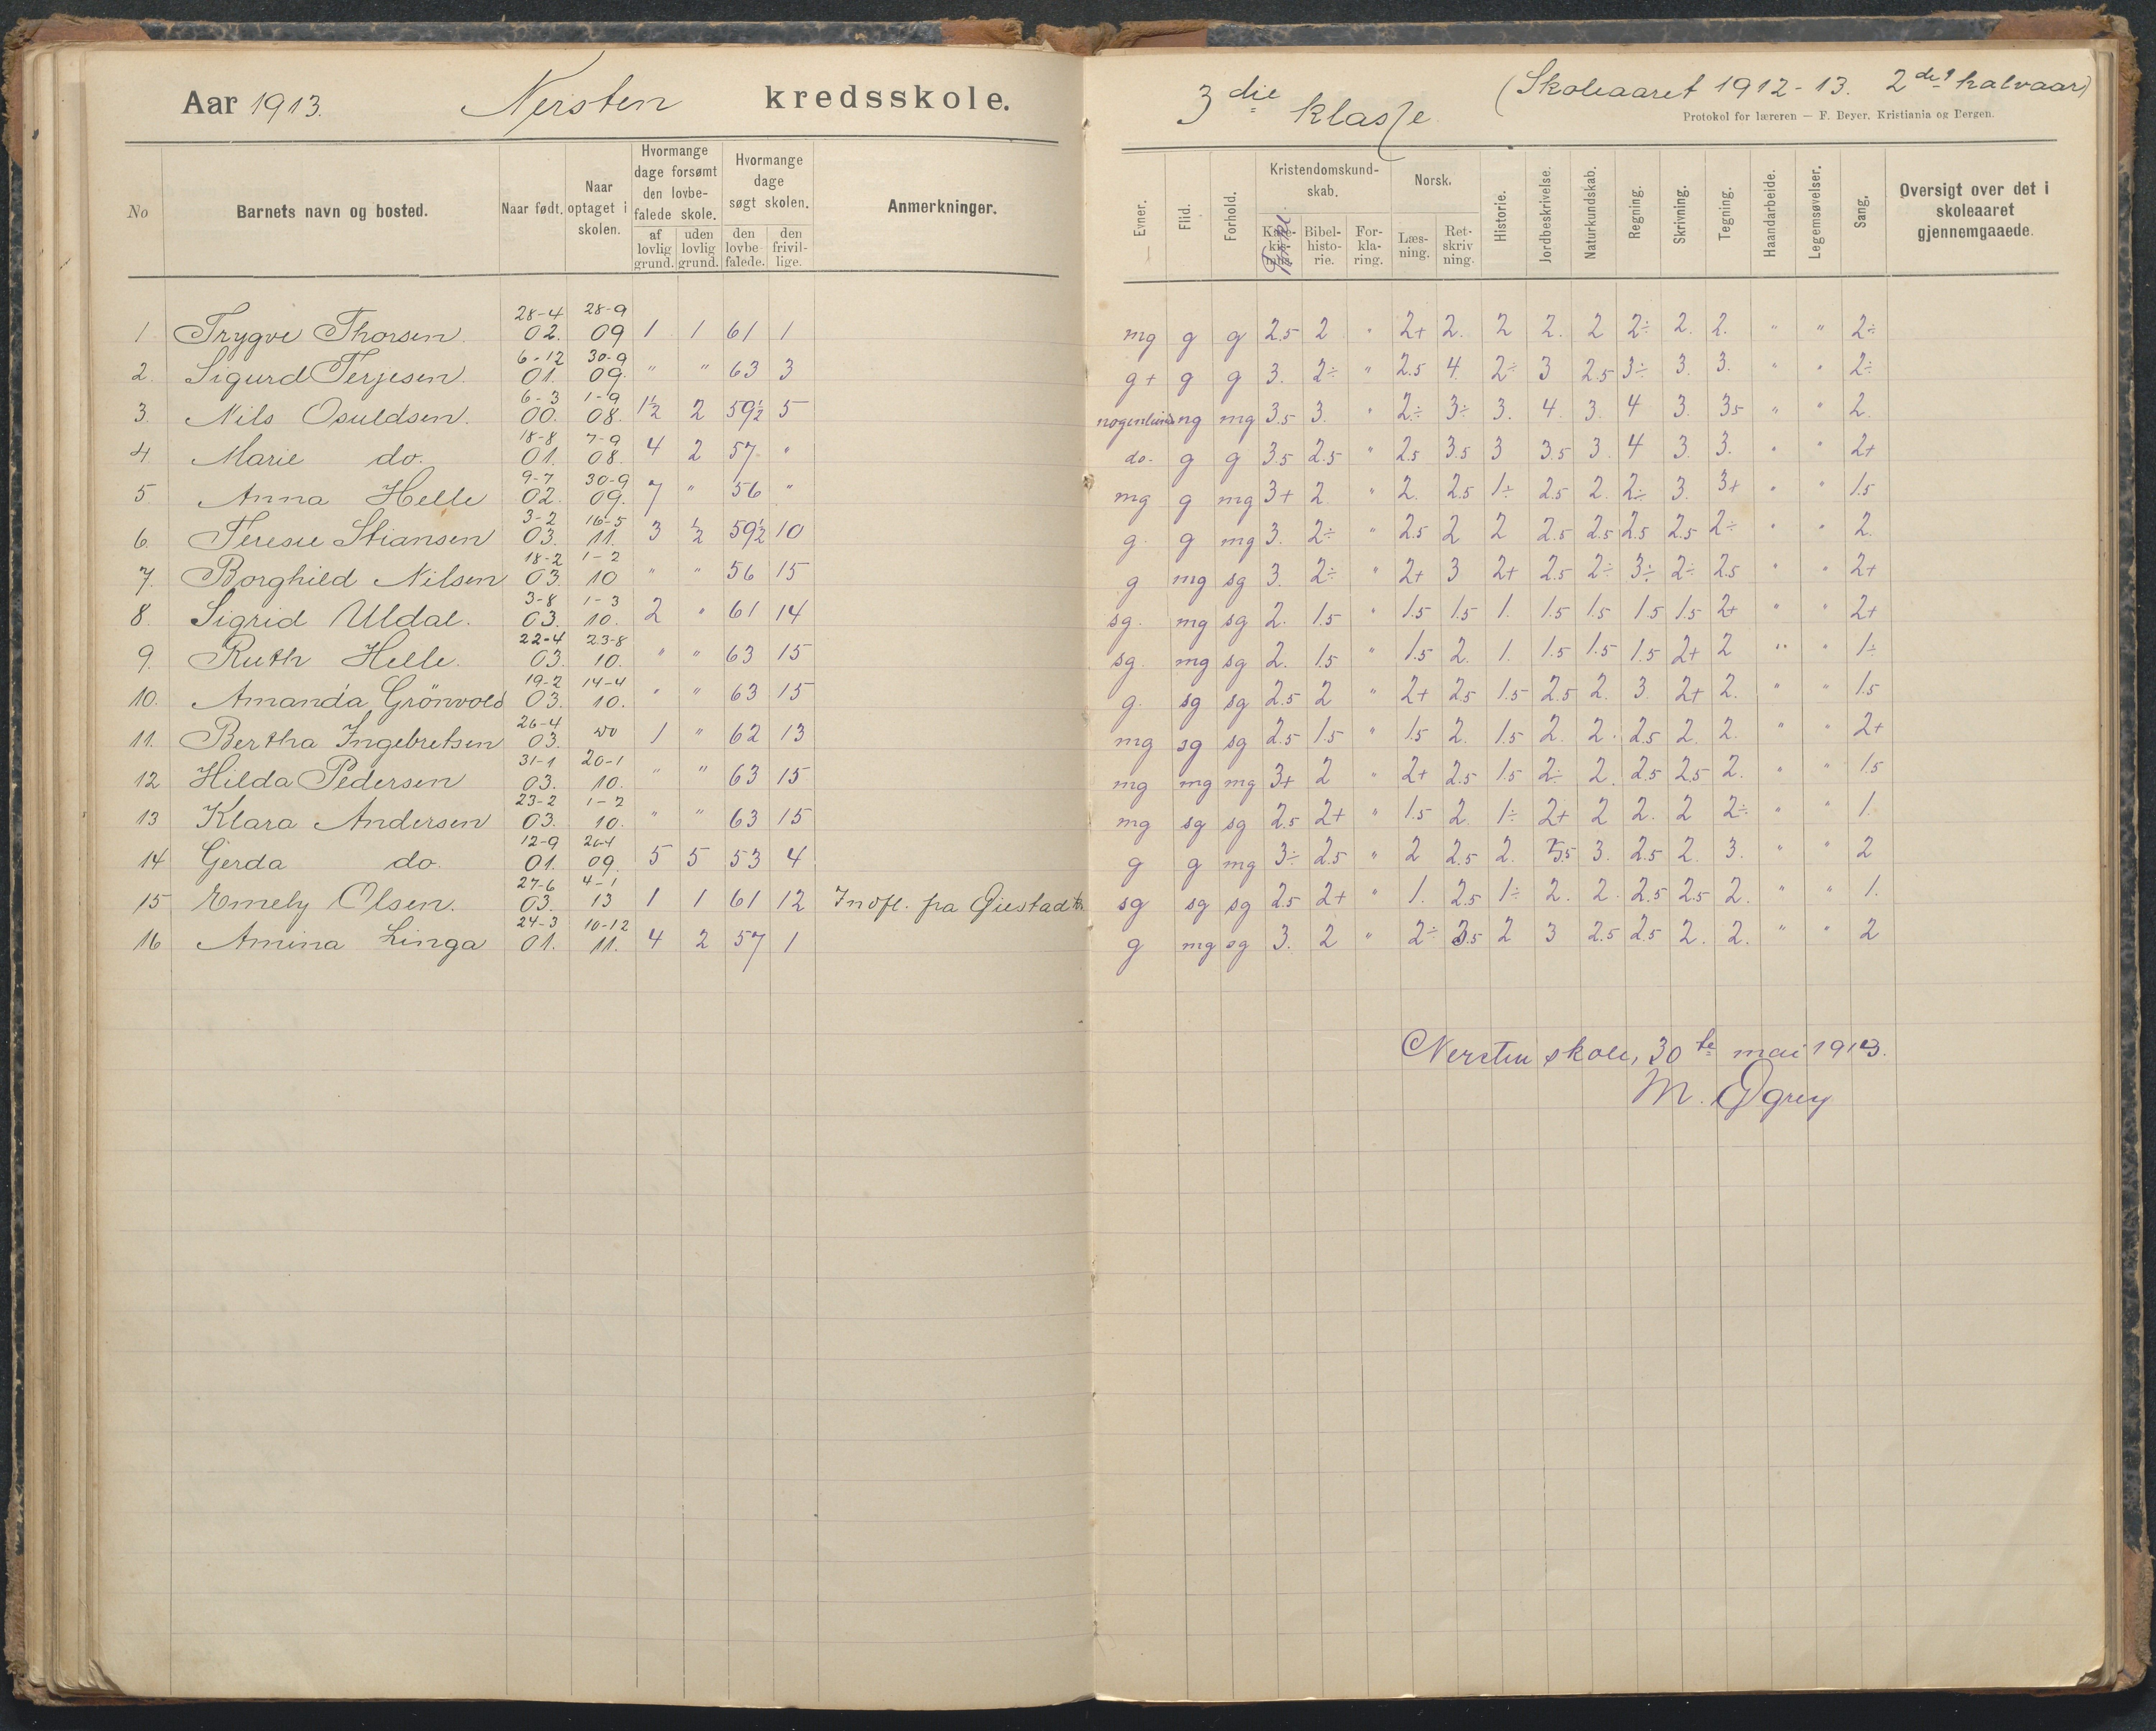 Aar 1913. Nersten kredsskole.
No
Barnets navn og bosted.
Naar født.
Naar optaget i skolen.
Hvormange dage forsømt den lovbefalede skole.
af lovlig grund.
uden lovlig grund.
Hvormange dage søgt skolen.
den lovbefalede.
den frivillige.
Anmerkninger.
1 Trygve Thorsen. 28-4 02. 28-9 09 1 1 61 1
2. Sigurd Terjesen. 6-12 01. 30-9 09. " " 63 3
3. Nils Osuldsen. 6-3 00. 1-9 08. 1½ 2 59½ 5
4 Marie do. 18-8 01. 7-9 08. 4 2 57 "
5. Anna Helle 9-7 02. 30-9 09. 7 " 56 "
6. Terese Stiansen 3-2 03. 16-5 11. 3 ½ 59½ 10
7. Borghild Nilsen 18-2 03. 1-2 10 " " 56 15
8. Sigrid Uldal. 3-8 03. 1-3 10. 2 " 61 14
9. Ruth Helle. 22-4 03. 23-8 10. " " 63 15
10. Amanda Grönvold 19-2 03. 14-4 10. " " 63 15
11. Bertha Ingebretsen 26-4 03. 1 " 62 13
12 Hilda Pedersen 31-1 03. 20-1 10. " " 63 15
13 Klara Andersen 23-2 03. 1-2 10. " " 63 15
14 Gerda do. 12-9 01. 26-4 09. 5 5 53 4
15 Emely Olsen. 27-6 03. 4-1 13 1 1 61 12 Indfl. fra
16 Amina Linga 24-3 01. 10-12 11. 4 2 57 1
3die klasse (Skoleaaret 1912-13. 2det halvaar)
Protokol for læreren — F. Beyer, Kristiania og Bergen.
Evner.
Flid.
Forhold.
Kristendomskundskab.
Bibelhistorie.
Forklaring.
Norsk.
Læsning.
Retskrivning.
Historie.
Jordbeskrivelse.
Naturkundskab.
Regning.
Skrivning.
Tegning.
Haandarbeide.
Legemsøvelser.
Sang.
Oversigt over det i skoleaaret gjennemgaaede.
mg g g 2.5 2 " 2+ 2. 2 2. 2 2÷ 2. 2. " " 2÷
g+ g g 3. 2÷ " 2.5 4. 2÷ 3 2.5 3÷ 3. 3. " " 2÷
nogenlunde ng mg 3.5 3. " 2÷ 3÷ 3. 4. 3. 4 3. 3.5 " " 2.
do- g g 3.5 2.5 " 2.5 3.5 3 3.5 3. 4 3. 3. " " 2+
mg g mg 3+ 2. " 2. 2.5 1÷ 2.5 2. 2÷ 3. 3+ " " 1.5
g. g mg 3. 2÷ " 2.5 2 2 2.5 2.5 2.5 2.5 2÷ " " 2.
g mg sg 3. 2÷ " 2+ 3 2+ 2.5 2÷ 3÷ 2÷ 2.5 " " 2+
sg. mg sg 2. 1.5 " 1.5 1.5 1. 1.5 1.5 1.5 1.5 2+ " " 2+
sg. mg sg 2. 1.5 " 1.5 2. 1. 1.5 1.5 1.5 2+ 2 " " 1÷
g. sg sg 2.5 2 " 2+ 2.5 1.5 2.5 2. 3. 2+ 2. " " 1.5
mg sg sg 2.5 1.5 " 1.5 2. 1.5 2. 2. 2.5 2. 2. " " 2+
mg mg mg 3+ 2 " 2+ 2.5 1.5 2÷ 2. 2.5 2.5 2. " " 1.5
mg sg sg 2.5 2+ " 1.5 2. 1÷ 2+ 2 2. 2 2÷ " " 1.
g g mg 3÷ 2.5 " 2 2.5 2. 3.5 3. 2.5 2. 3. " " 2
sg sg sg 2.5 2+ " 1. 2.5 1÷ 2. 2. 2.5 2.5 2. " " 1.
g mg sg 3. 2 " 2÷ 3.5 2 3 2.5 2.5 2. 2. " " 2
Nersten skole, 30te mai 1913.
M.